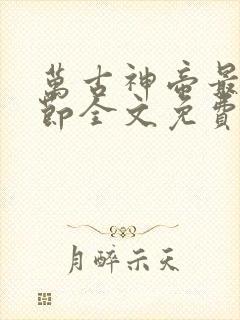 萬古神帝最
節全文免費
月醉示天